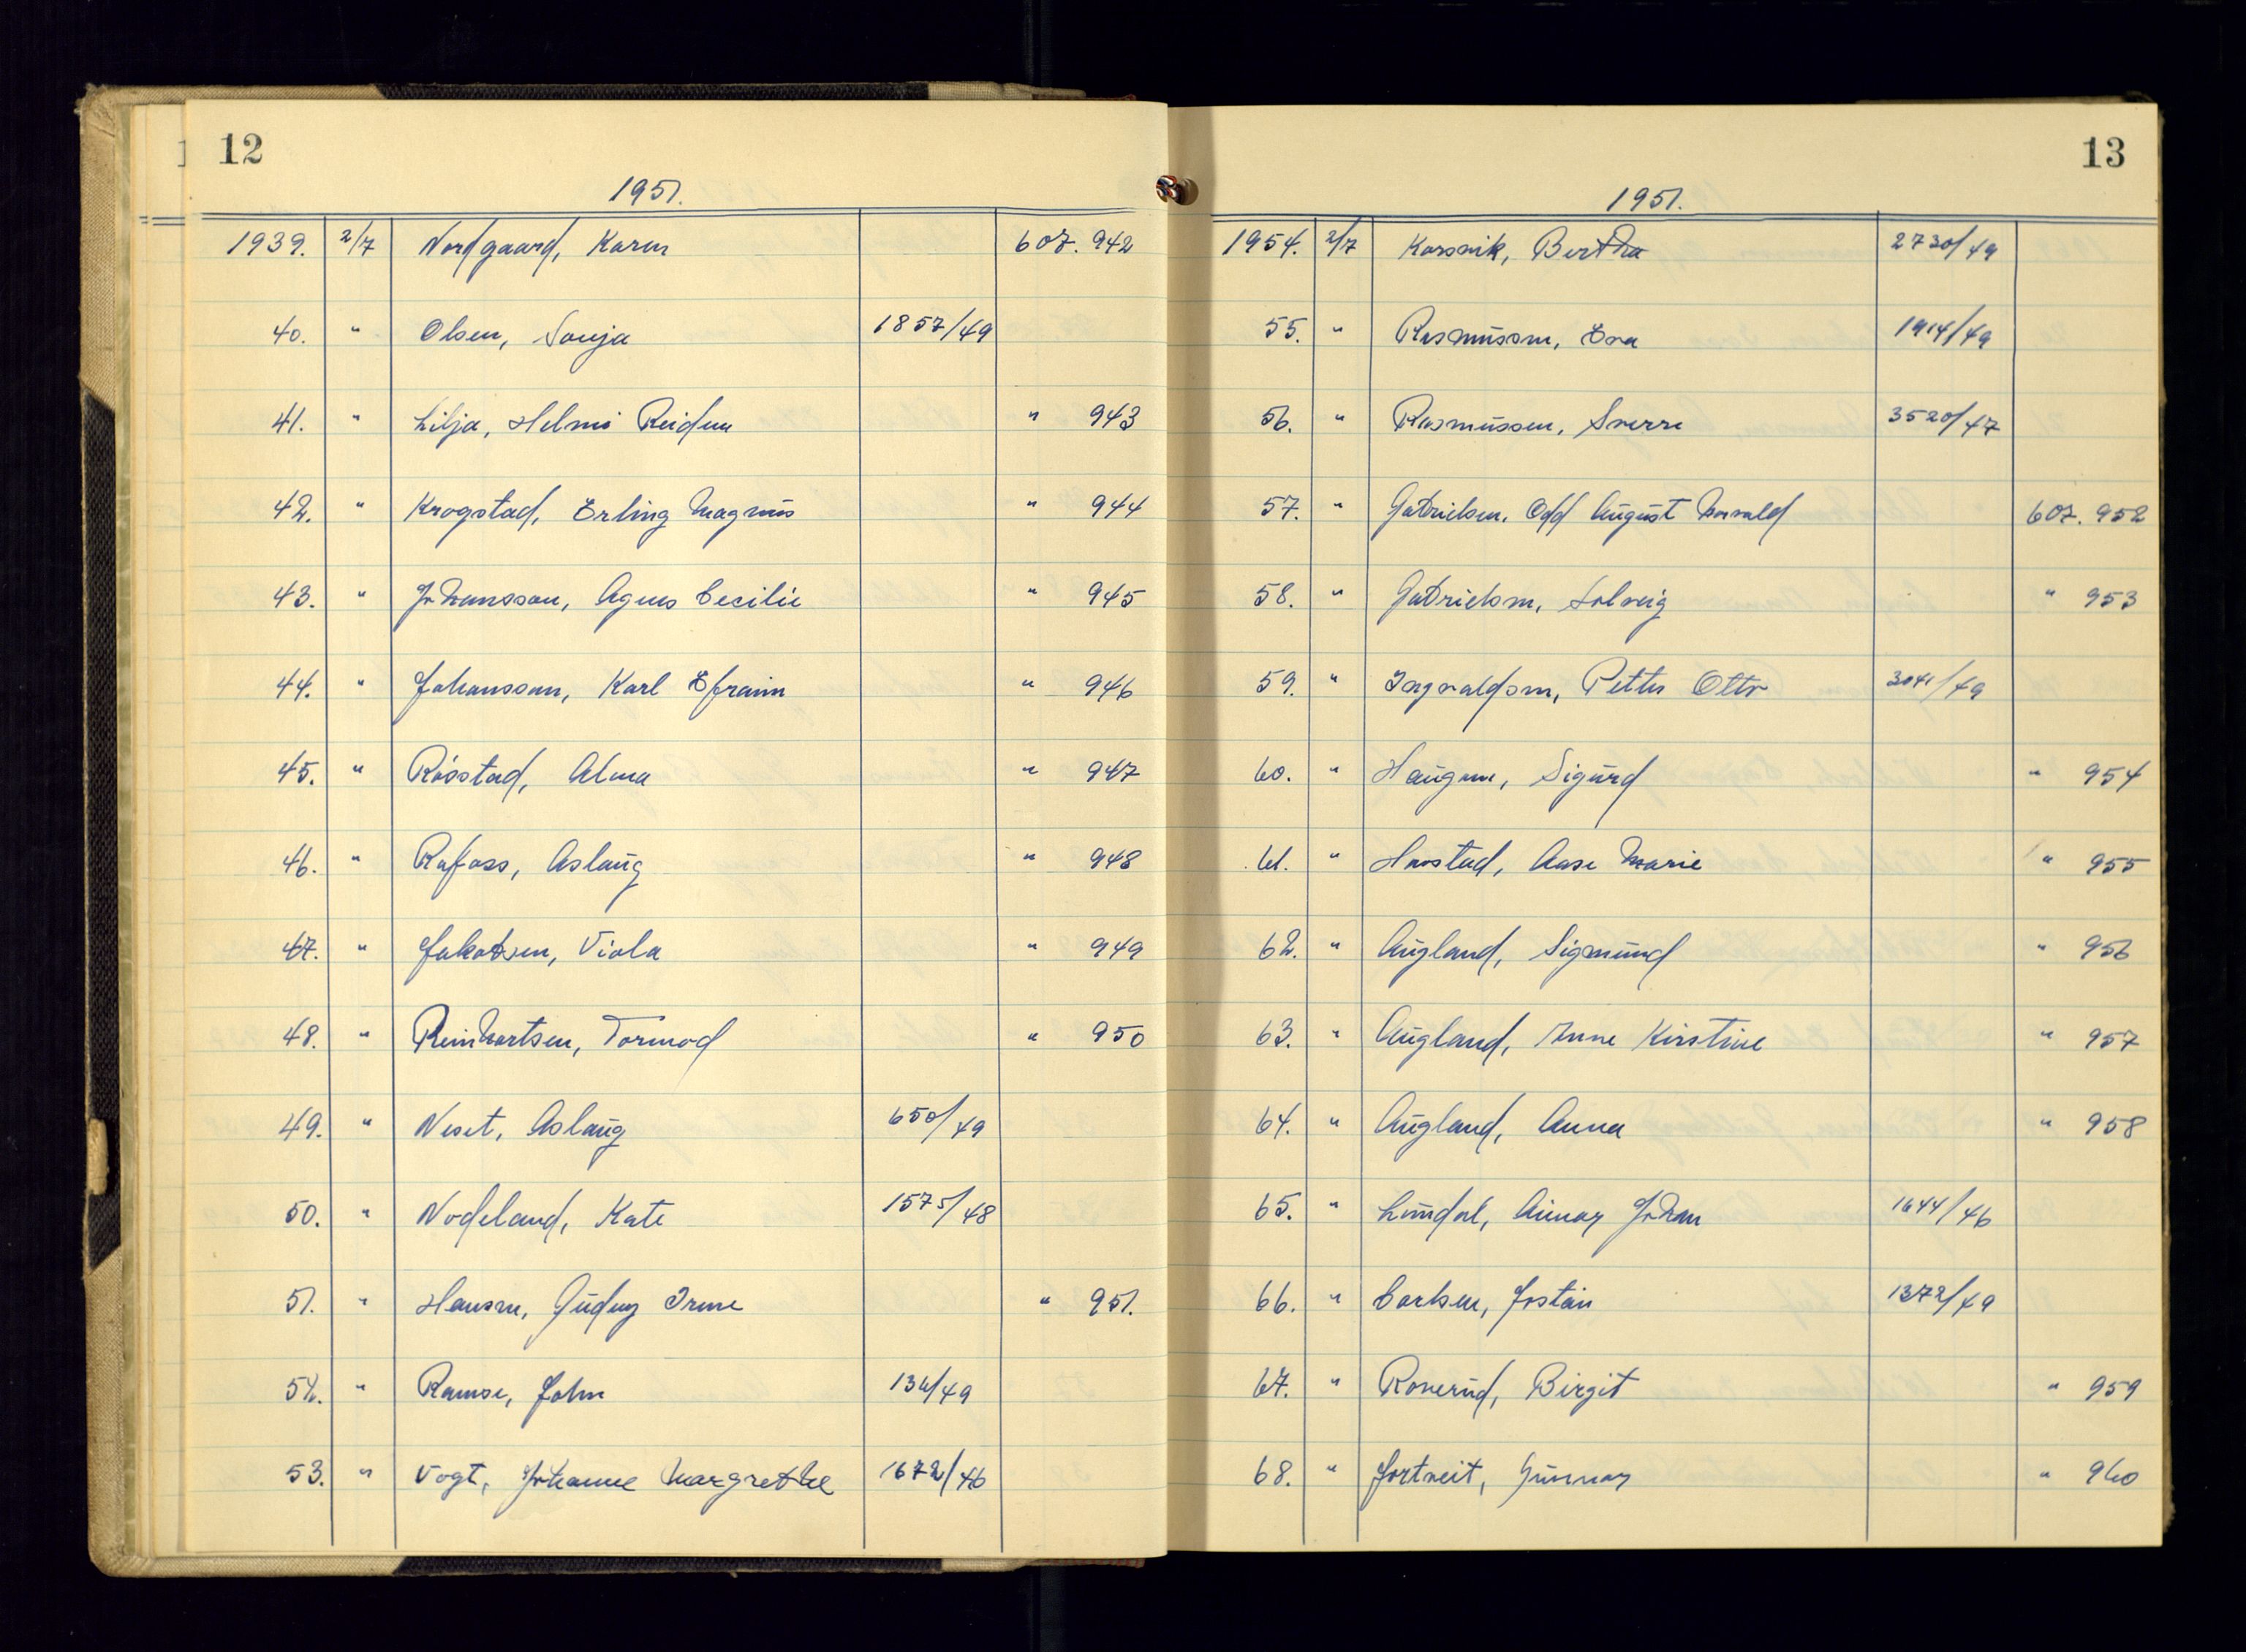 12
1951.
1939. 2/7 Nordgaard, Karen 607. 942
40. " Olsen, Sonja 1857/49
41. " Lilja, Helmi Reidun " 943
42. " Krogstad, Erling Magnus " 944
43. " Johansson, Agnes Cecilie " 945
44. " Johansson, Karl Efraim " 946
45. " Rosstad, Alma " 947
46. " Rafoss, Aslaug " 948
47. " Jakobsen, Viola " 949
48. " Reinhartsen, Tormod " 950
49. " Neset, Aslaug 650/49
50. " Nodeland, Kate 1575/48
51. " Hansen, Gudny Irene " 951.
52. " Ramse, John 136/49
53. " Vogt, Johanne Margrethe 1672/46
13
1951.
1954. 2/7 Korsvik, Bertha 2730/49
55. " Rasmussen, Eva 1914/49
56. " Rasmussen, Sverre 3520/47
57. " Gabrielsen, Odd August 607. 952
58. " Gabrielsen, Solveig " 953
59. " Ingvaldsen, Petter Otto 3041/49
60. " Haugen, Sigurd " 954
61. " Harstad, Aase Marie " 955
62. " Augland, Sigmund " 956
63. " Augland, Anne Kirstine " 957
64. " Augland, Anna " 958
65. " Lundal, Einar Johan 1644/46
66. " Carlsen, Jostein 1372/49
67. " Roverud, Birgit " 959
68. " Jortveit, Gunnar " 960